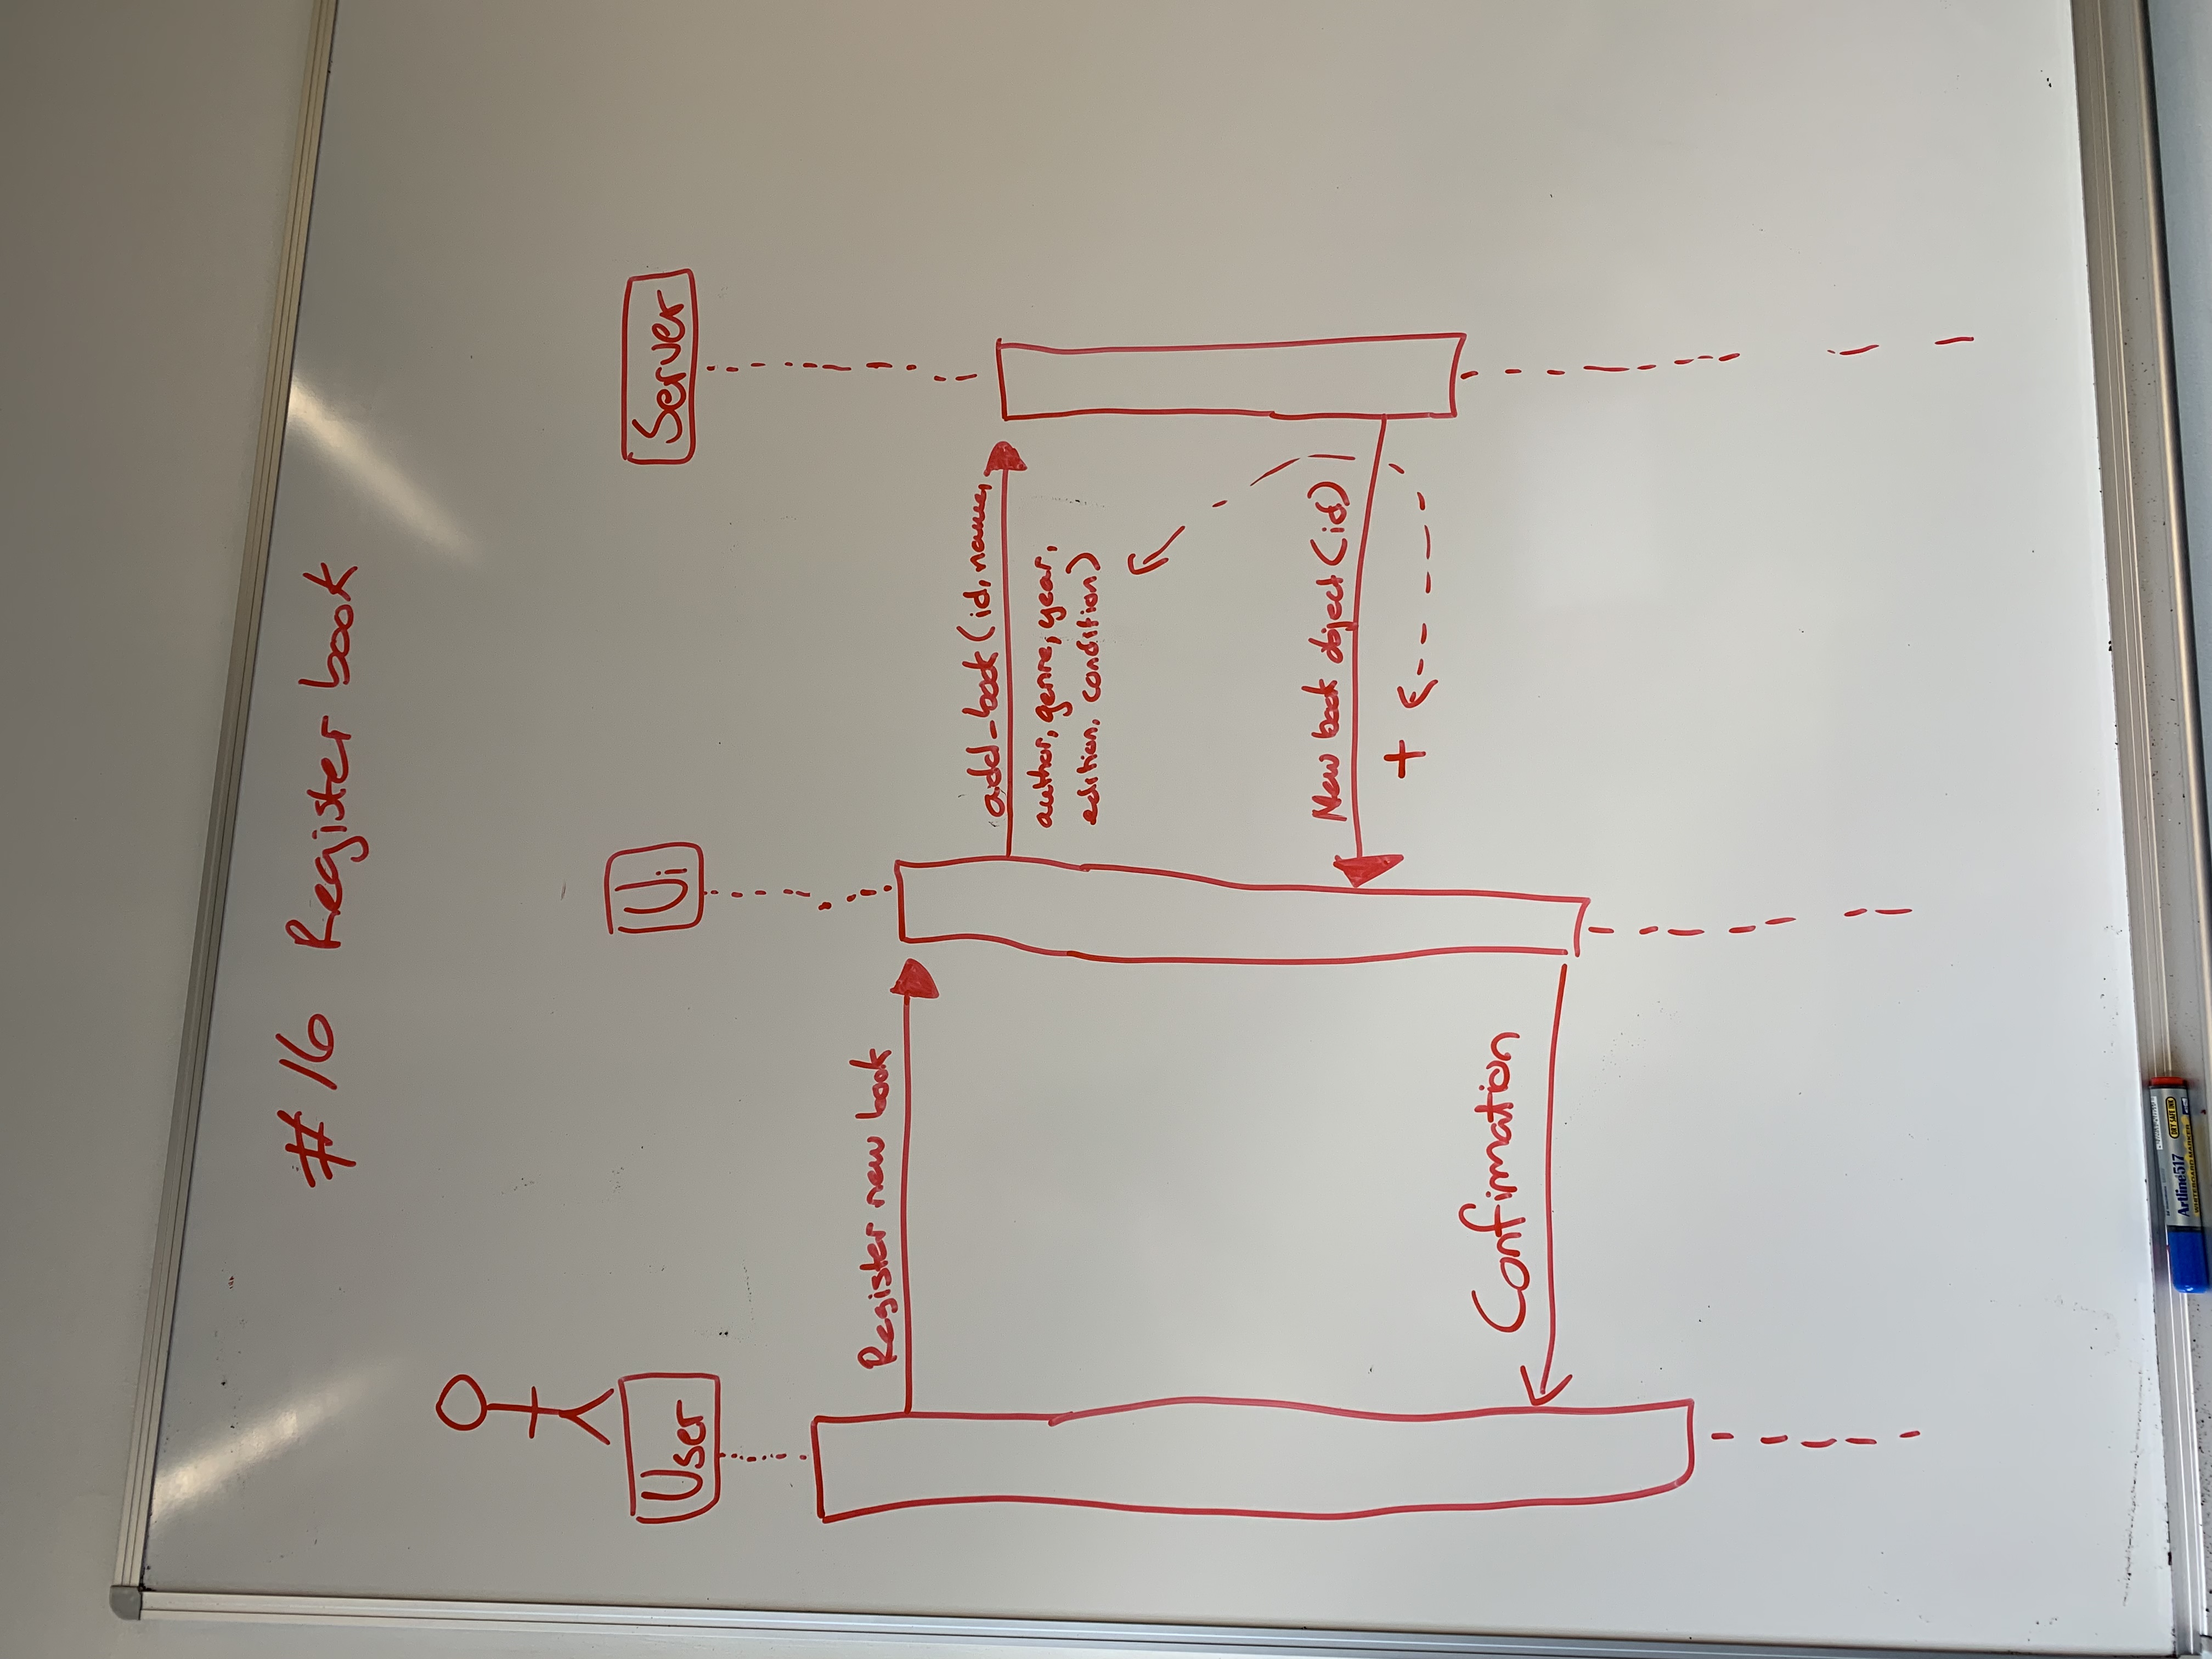 # 16 Register book
User
Ui
Server
Register new book
add_book (id, name,
author, genre, year,
edition, condition)
New book object (id)
+
Confirmation
Artline 517
DRY SAFE INK
WHITEBOARD MARKER